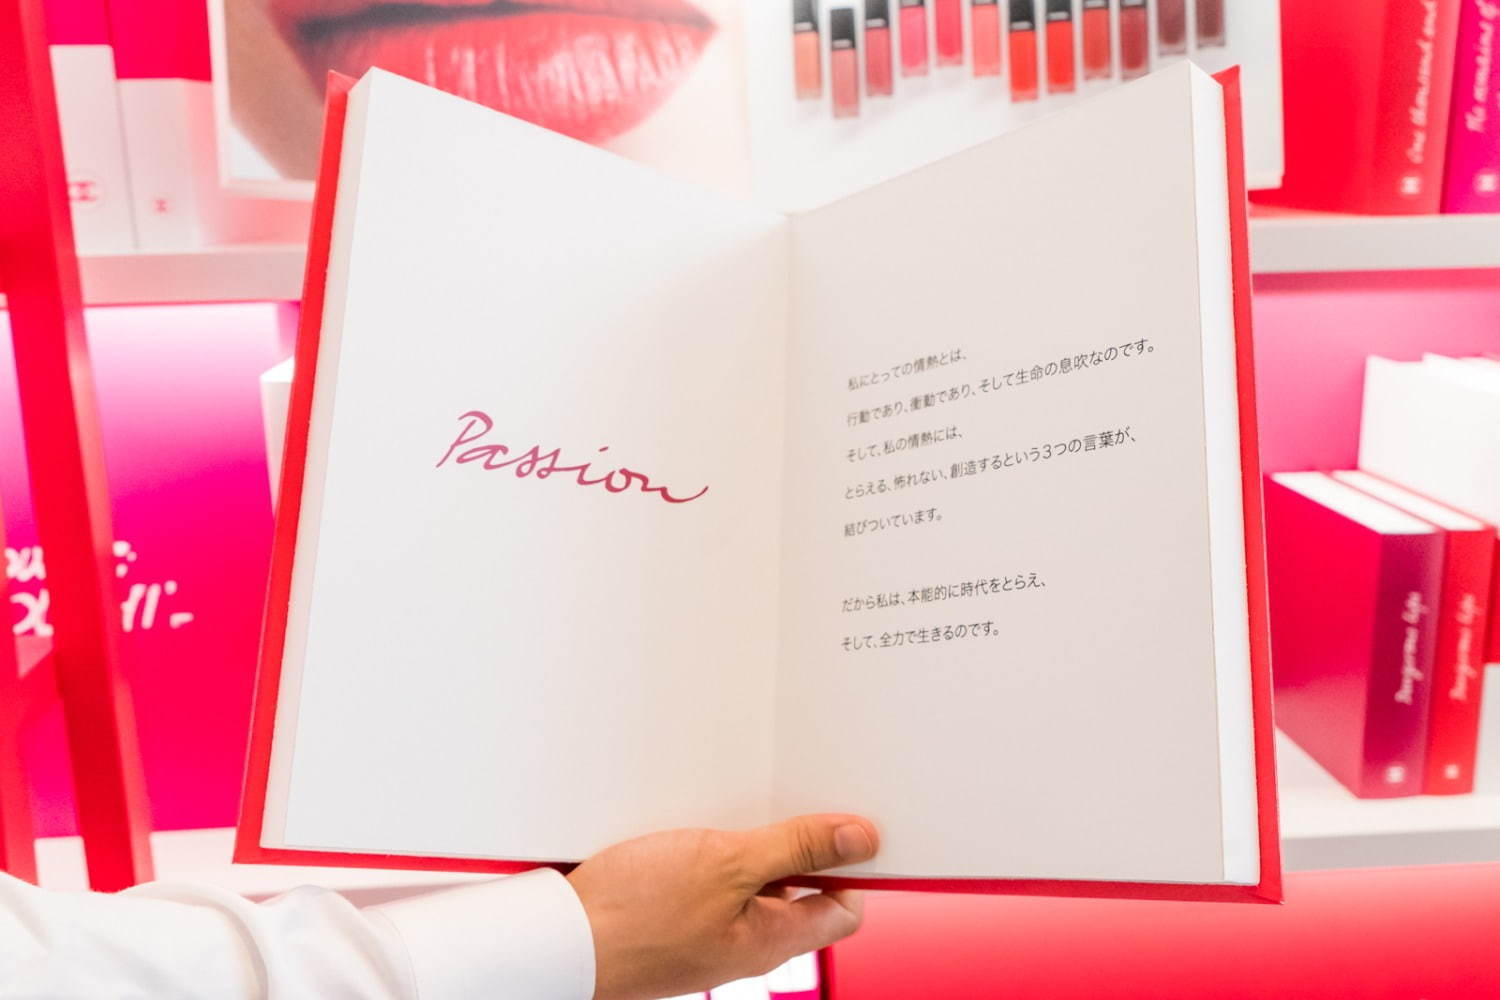 One thousand and
The remains of
Passion
私にとっての情熱とは、
行動であり、衝動であり、そして生命の息吹なのです。
そして、私の情熱には、
とらえる、怖れない、創造するという3つの言葉が、
結びついています。
だから私は、本能的に時代をとらえ、
そして、全力で生きるのです。
Dangerous lips
Dangerous lips